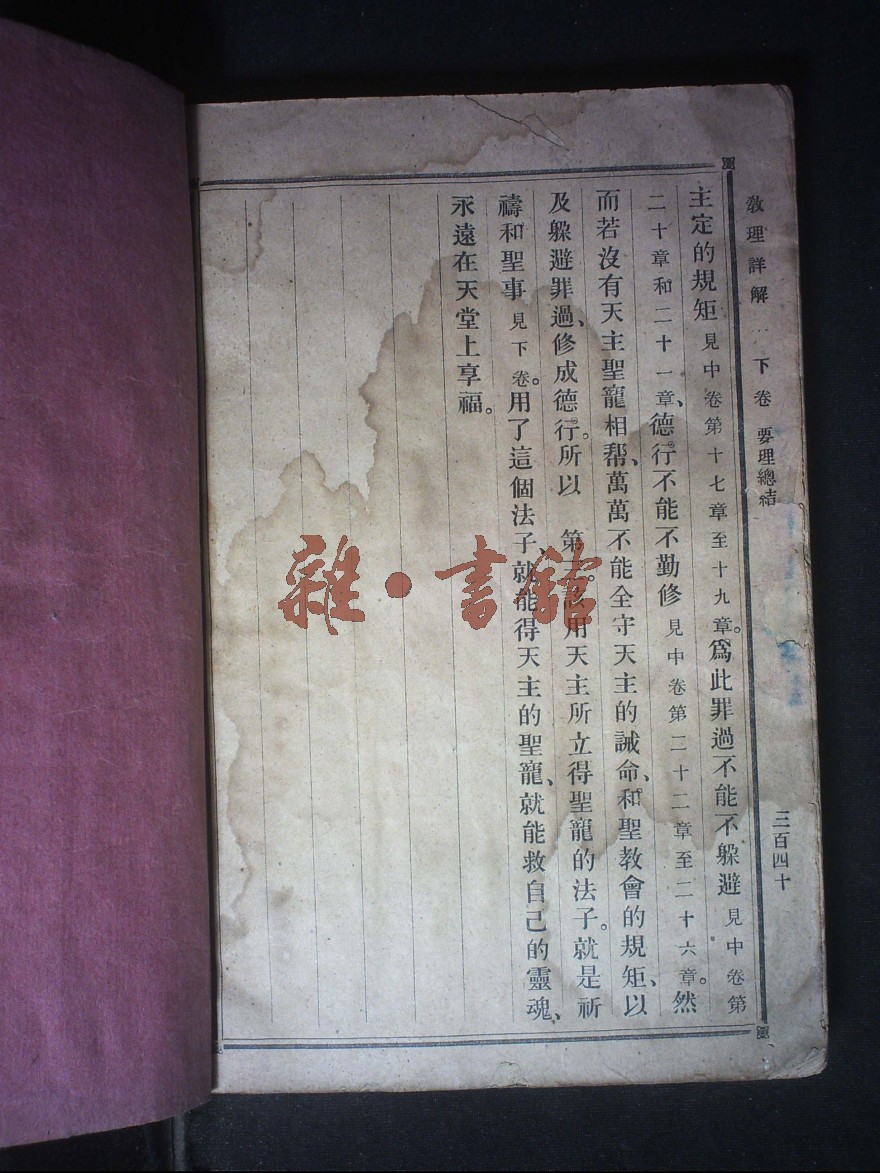 教理詳解 下卷 要理總結 三百四十
主定的規矩見中卷第十七章至十九章。爲此罪過不能不躲避見中卷第
二十章和二十一章、德行不能不勤修見中卷第二十二章至二十六章。然
而若沒有天主聖寵相帮、萬萬不能全守天主的誡命、和聖教會的規矩、以
及躲避罪過、修成德行。所以 第 該用天主所立得聖寵的法子。就是祈
禱和聖事見下卷。用了這個法子、就能得天主的聖寵、就能救自己的靈魂、
永遠在天堂上享福。
雜·書館